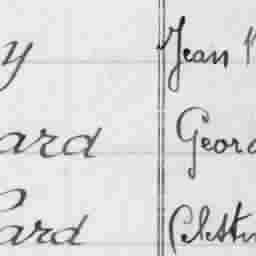 y Jean
ard Geor
ard Celesti